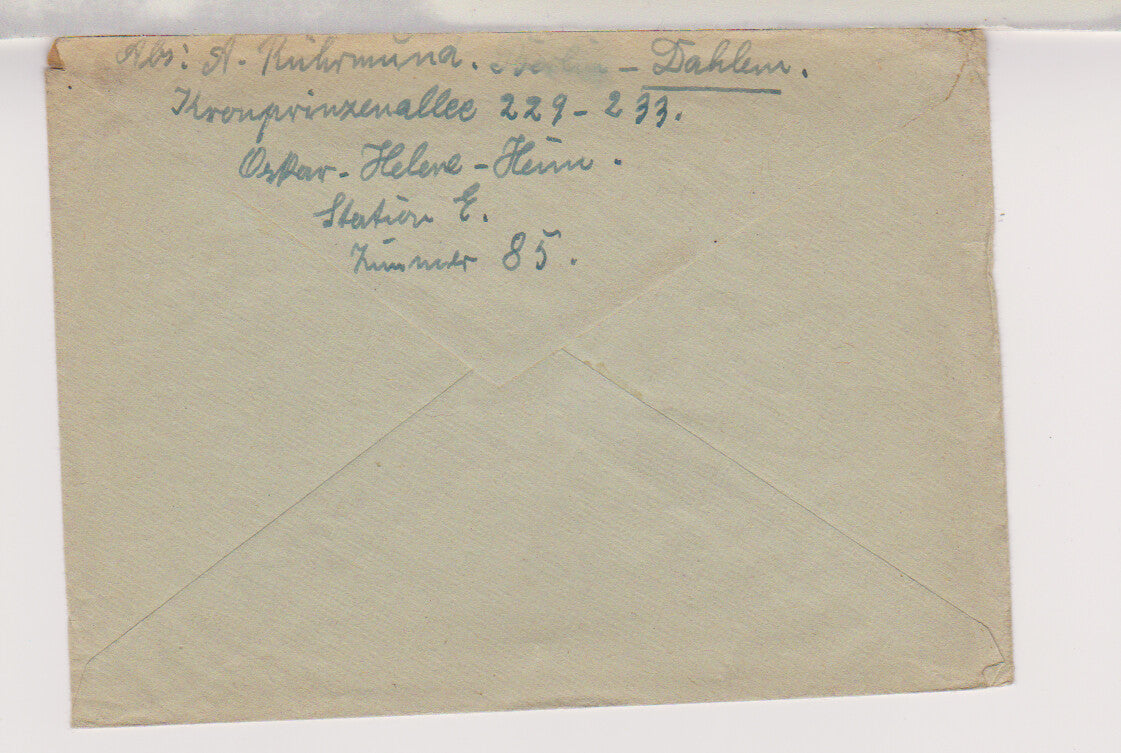 Abs: A. Rührmund. Berlin - Dahlem.
Kronprinzenallee 229-233.
Oskar-Helene-Heim.
Station E.
Zimmer 85.